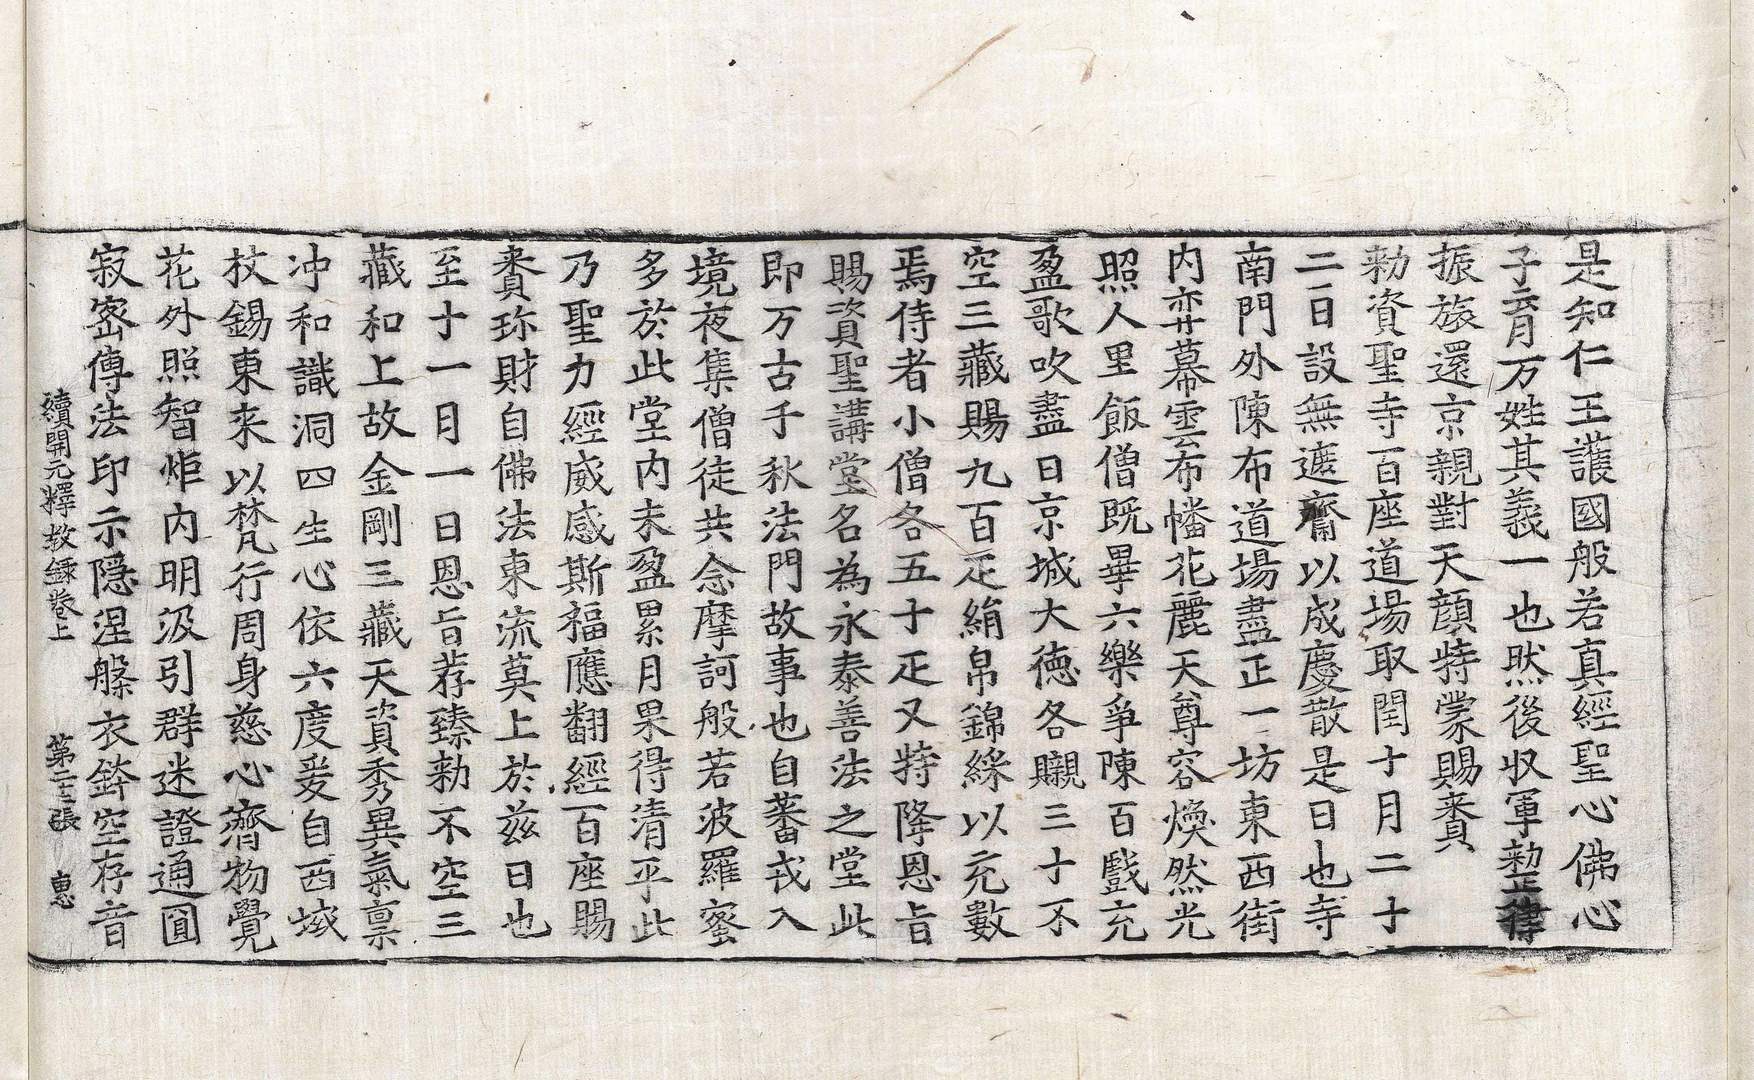 是知仁王護國般若真經聖心佛心
子育万姓其義一也然後収軍勑
振旅還京親對天顔特蒙賜賚
勑資聖寺百座道場取閏十月二十
二日設無遮齋以成慶散是日也寺
南門外陳布道場盡正一坊東西街
内弈幕雲布幡花麗天尊容煥然光
照人里飯僧既畢六樂爭陳百戲充
盈歌吹盡日京城大德各䞋三十不
空三藏賜九百疋絹帛錦綵以充數
焉侍者小僧各五十疋又特降恩旨
賜資聖講堂名為永泰善法之堂此
即万古千秋法門故事也自蕃戎入
境夜集僧徒共念摩訶般若波羅蜜
多於此堂内未盈累月果得清平此
乃聖力經威感斯福應翻經百座賜
賚珎財自佛法東流莫上於兹日也
至十一月一日恩旨荐臻勑不空三
藏和上故金剛三藏天資秀異氣禀
冲和識洞四生心依六度爰自西域
杖錫東来以梵行周身慈心濟物覺
花外照智炬内明汲引群迷證通圎
寂宻傳法印示隠涅槃衣鉢空存音
續開元釋教録卷上 第二十三張 惠